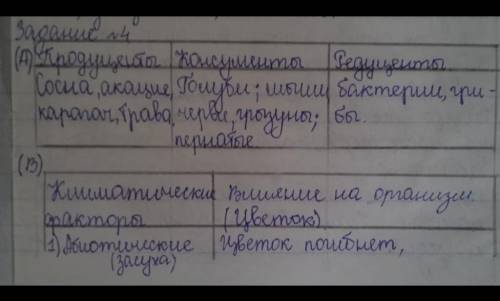 Задание №4
(А) Продуценты Консументы Редуценты
Сосна, акация, Голуби; мыши бактерии, гри-
карагач, трава черви, грызуны; бы.
пернатые.
(В)
Климатические Влияние на организм
факторы (Цветок)
1) Абиотические Цветок погибнет,
(засуха)